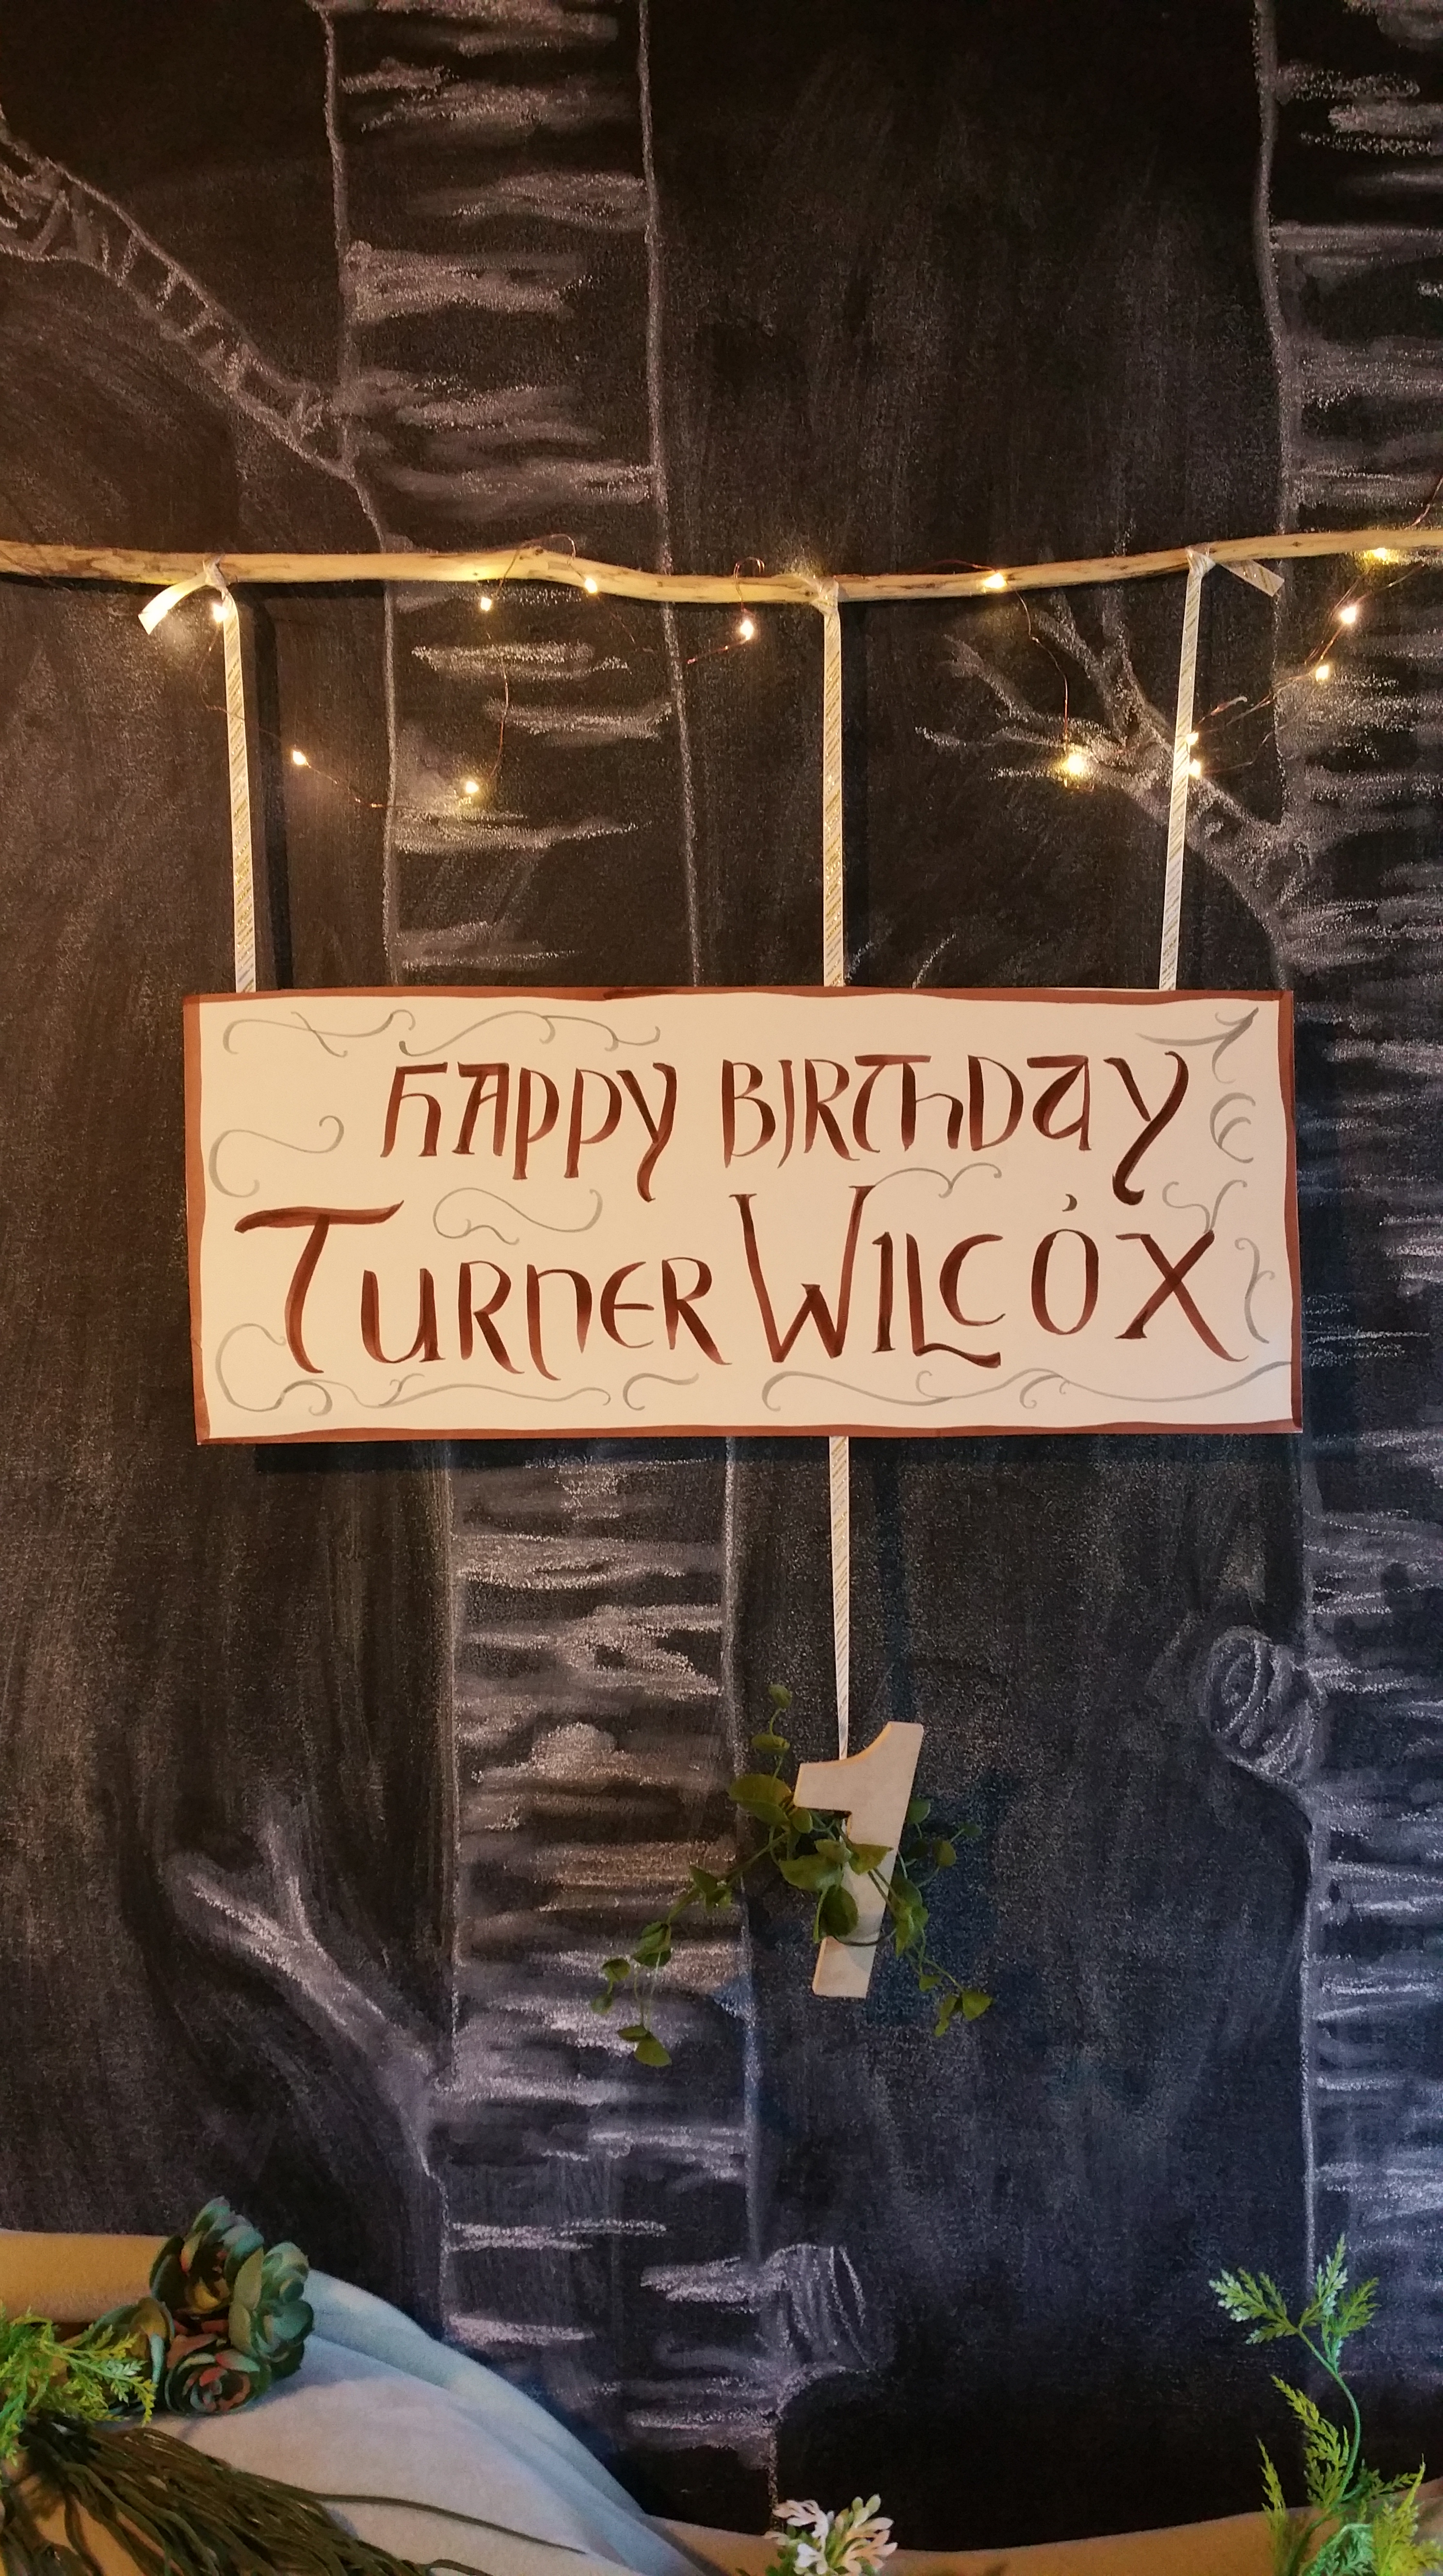 HAPPY BIRTHDAY
TURNER WILCOX
1